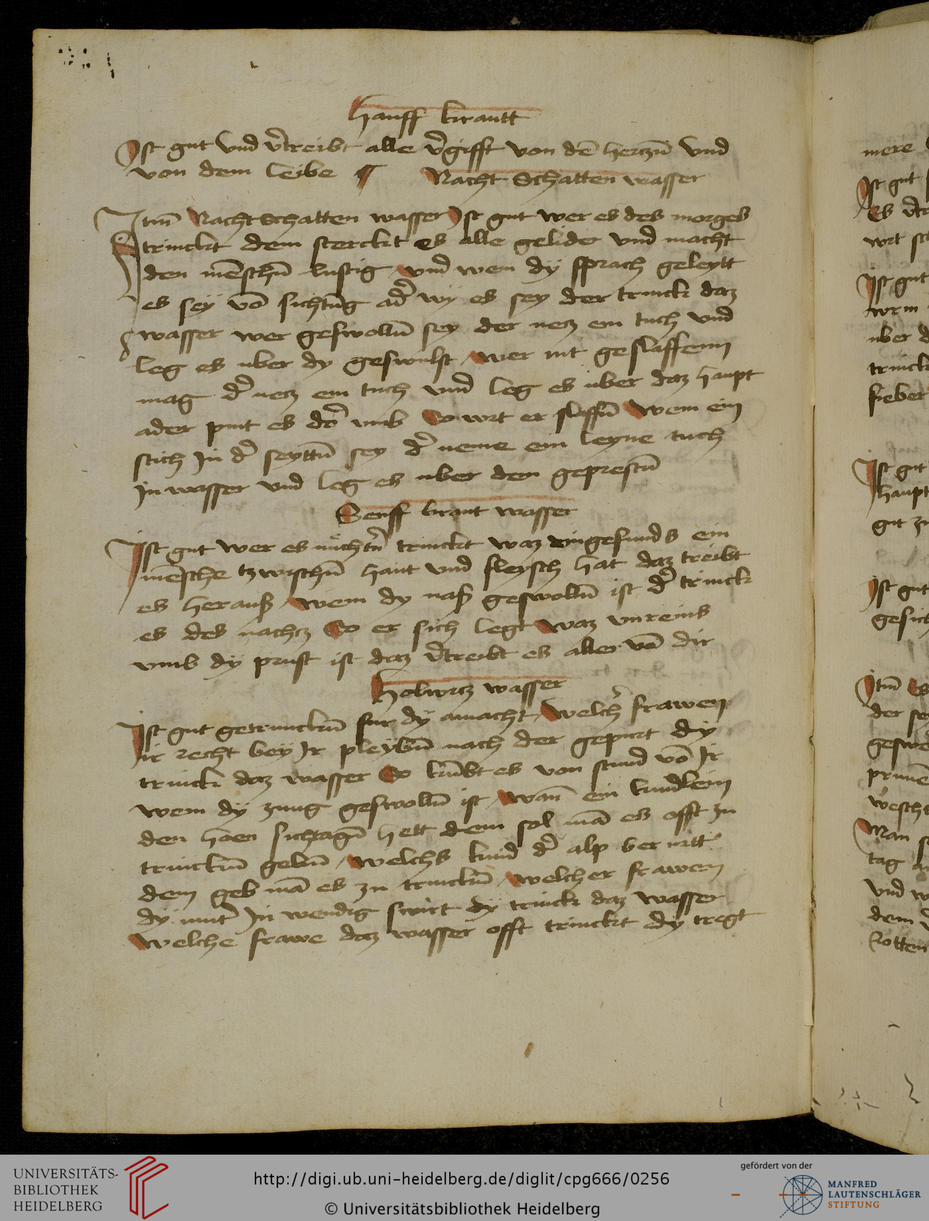 hanff krautt
Ist gut vnd v̄treibt alle v̄gifft von dē herczū vnd
von dem leibe Nacht Schatten wasser
Itm̄ Nacht Schatten wasser Ist gut wer es des morges
trinckt dem sterckt es alle gelider vnd macht
den mēschū lustig vnd wem dy sprach geleytt
es sey vō sichtūg ad̄ wy es sey der trinck daz
wasser wer geswollū sey der necz ein tuch vnd
leg es vber dy geswulst wer nit geslaffenn
mag d̄ necz ein tuch vnd leg es vber daz haupt
ader pint es dō vmb So wirt er slaffū Wem ein
stich In d̄ seyttū sey d̄ neme ein leyne tuch
In wasser vnd leg es vber den geprestū
Senff kraut wasser
Ist gut wer es nüchtn̄ trinckt waz vngesunds ein
mēsche tzwischū haut vnd fleysch hat daz treibt
es herauß wem dy naß geswollū ist d̄ trinck
es des nachcz So er sich legt waz vnreins
vmb dy prust ist daz v̄treibt es alles vō dir
holwrcz wasser
Ist gut getrunckū fur dy amacht welch̄ frawen
ir recht bey Ir pleybū nach der gepurt dy
trinck daz wasser So kūbt es von stund vō Ir
wem dy zung geswollū ist wan̄ ein kindlein
den hoen sichtagū hett dem sol mā es offt zu
trinckū gebū welchs kind d̄ alp ver ritt
dem geb mā es zu trinckū welcher frawen
dy mut̄ In wendig swirt dy trinck daz wasser
Welche frawe daz wasser offt trinckt dy tregt
mere
Ist gut
Es
wrt
Ist gut
wrm
vber
trinck
fieber
Ist gut
haupt
gut zu
Ist gut
gesich
Itm̄
der
Man
tag
vnd
dem
UNIVERSITÄTS-
BIBLIOTHEK
HEIDELBERG
http://digi.ub.uni-heidelberg.de/diglit/cpg666/0256
© Universitätsbibliothek Heidelberg
gefördert von der
MANFRED
LAUTENSCHLÄGER
STIFTUNG